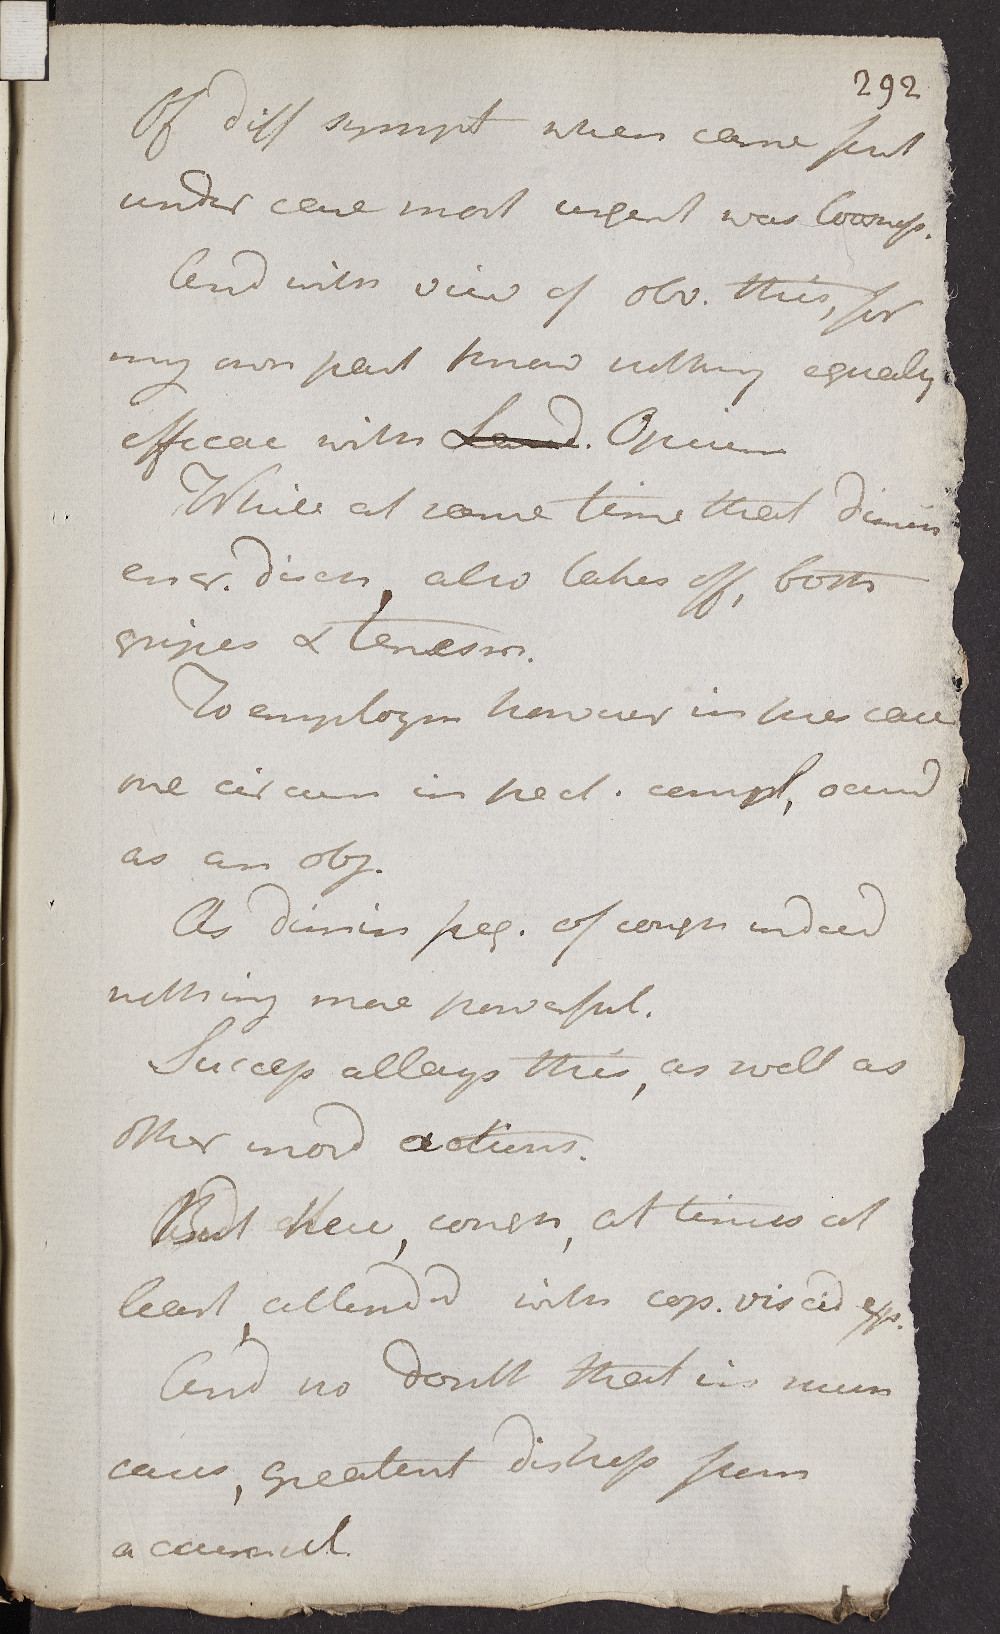 292
Of diff sympt when came first
under care most urgent was loosness.
And with view of obv. this, for
my own part know nothing equaly
efficac with Laud. Opium
While at same time that dimin
ever. disch, also takes off, both
gripes & tenesm.
To employm however in pres case
one circum in pect. compl, occurd
as an obj.
As dimin freq. of cough indeed
nothing more powerful.
Success allays this, as well as
other morb actions.
But here, cough, at times at
least, attended with cop. viscid exp.
And no doubt that in num
cases, greatest distress from
accumul.